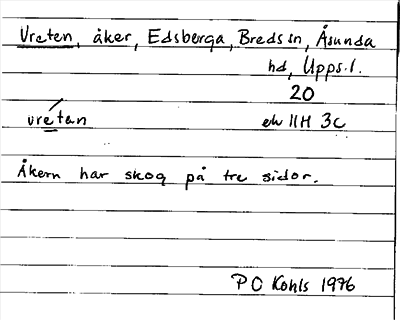 Vreten, åker, Edsberga, Breds sn, Åsunda
hd, Upps.l.
20
vretan
ek 11H 3c
Åkern har skog på tre sidor.
P O Kohls 1976